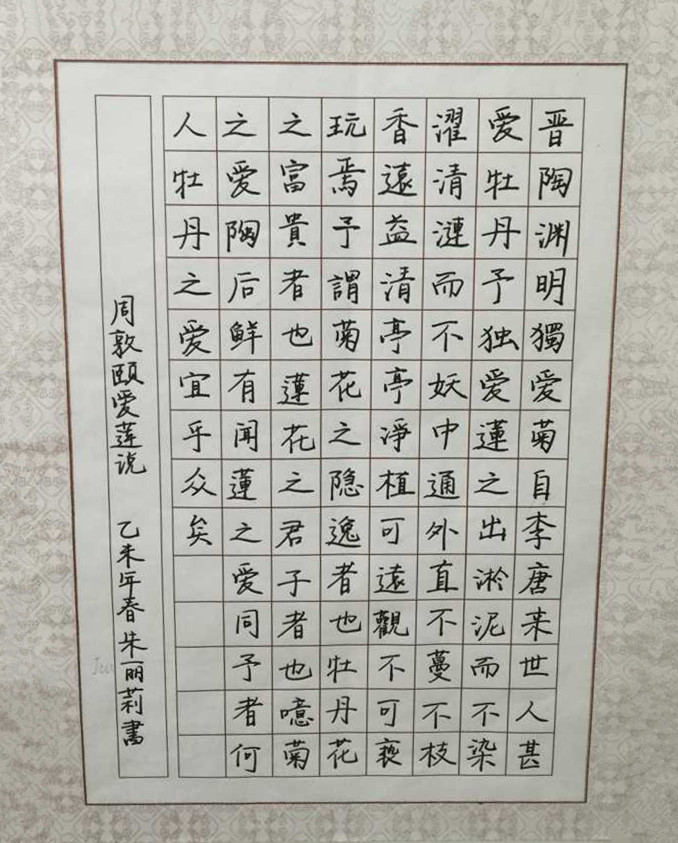 晋陶渊明獨愛菊自李唐来世人甚
愛牡丹予独愛蓮之出淤泥而不染
濯清漣而不妖中通外直不蔓不枝
香遠益清亭亭淨植可遠觀不可亵
玩焉予謂菊花之隐逸者也牡丹花
之富貴者也蓮花之君子者也噫菊
之愛陶后鮮有闻蓮之愛同予者何
人牡丹之愛宜乎众矣
周敦颐爱莲说 乙未年春 朱丽莉書